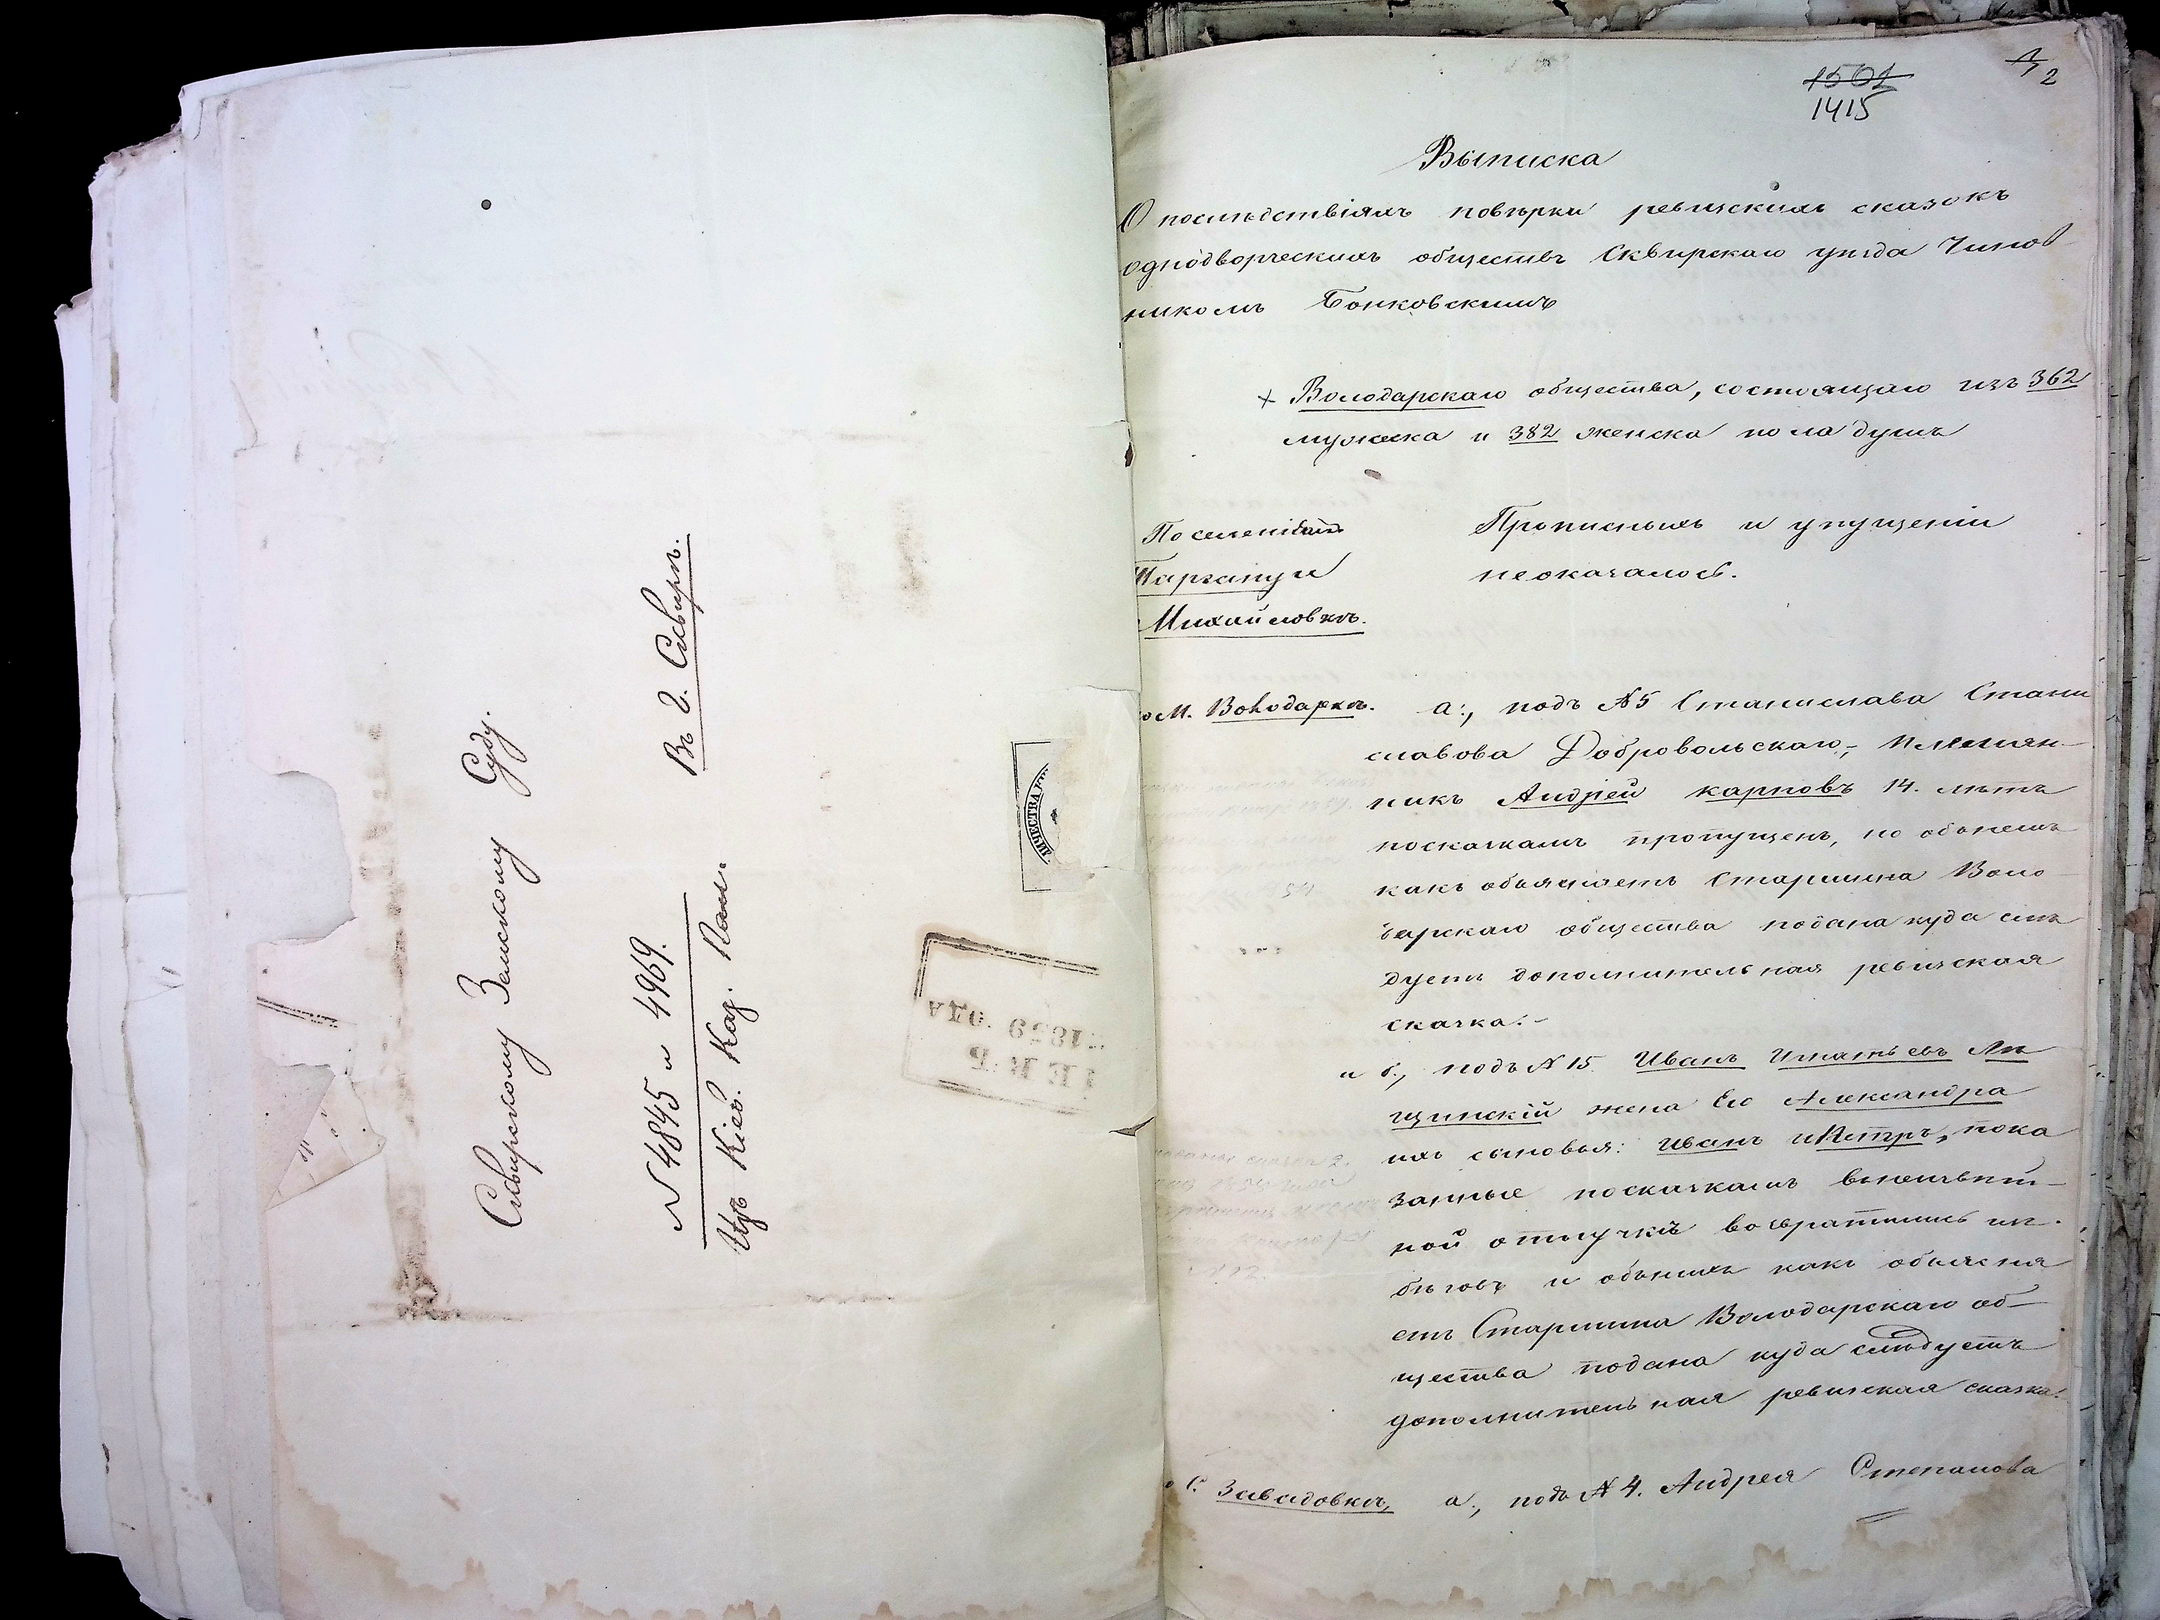 Сквирскому Земскому Суду.
N 4845 и 4969.
Въ г. Сквиръ.
Изъ Кіев. Каз. Пал.
ІЕВЪ
1859 ода
1415
2
Выписка
О послѣдствіяхъ повѣрки ревизскихъ сказокъ
однодворческихъ обществъ Сквирскаго уѣзда Чинов
никомъ Бонковскимъ
Володарскаго общества, состоящаго изъ 362
мужеска и 382 женска пола душъ
Прописныхъ и упущеній
неоказалось.
Михайловкѣ.
М. Володаркѣ. а., подъ N 5 Станислава Стани
славова Добровольскаго, племян-
никъ Андрей Карповъ 14. лѣтъ
посказкамъ пропущенъ, но объ немъ
какъ объясняетъ Старшина Воло
дарскаго общества подана куда слѣ
дуетъ дополнительная ревизская
сказка.-
и б., подъ N 15 Иванъ Игнатьевъ Ли
щинскій жена Его Александра
ихъ сыновья: Иванъ и Петръ, пока
занные посказкамъ
ной отлучкѣ возвратились изъ
бѣговъ и объ нихъ какъ объясня
етъ Старшина Володарскаго об-
щества подана куда слѣдуетъ
дополнительная ревизская сказка.
С. Завадовкѣ, а., подъ N 4. Андрея Степанова